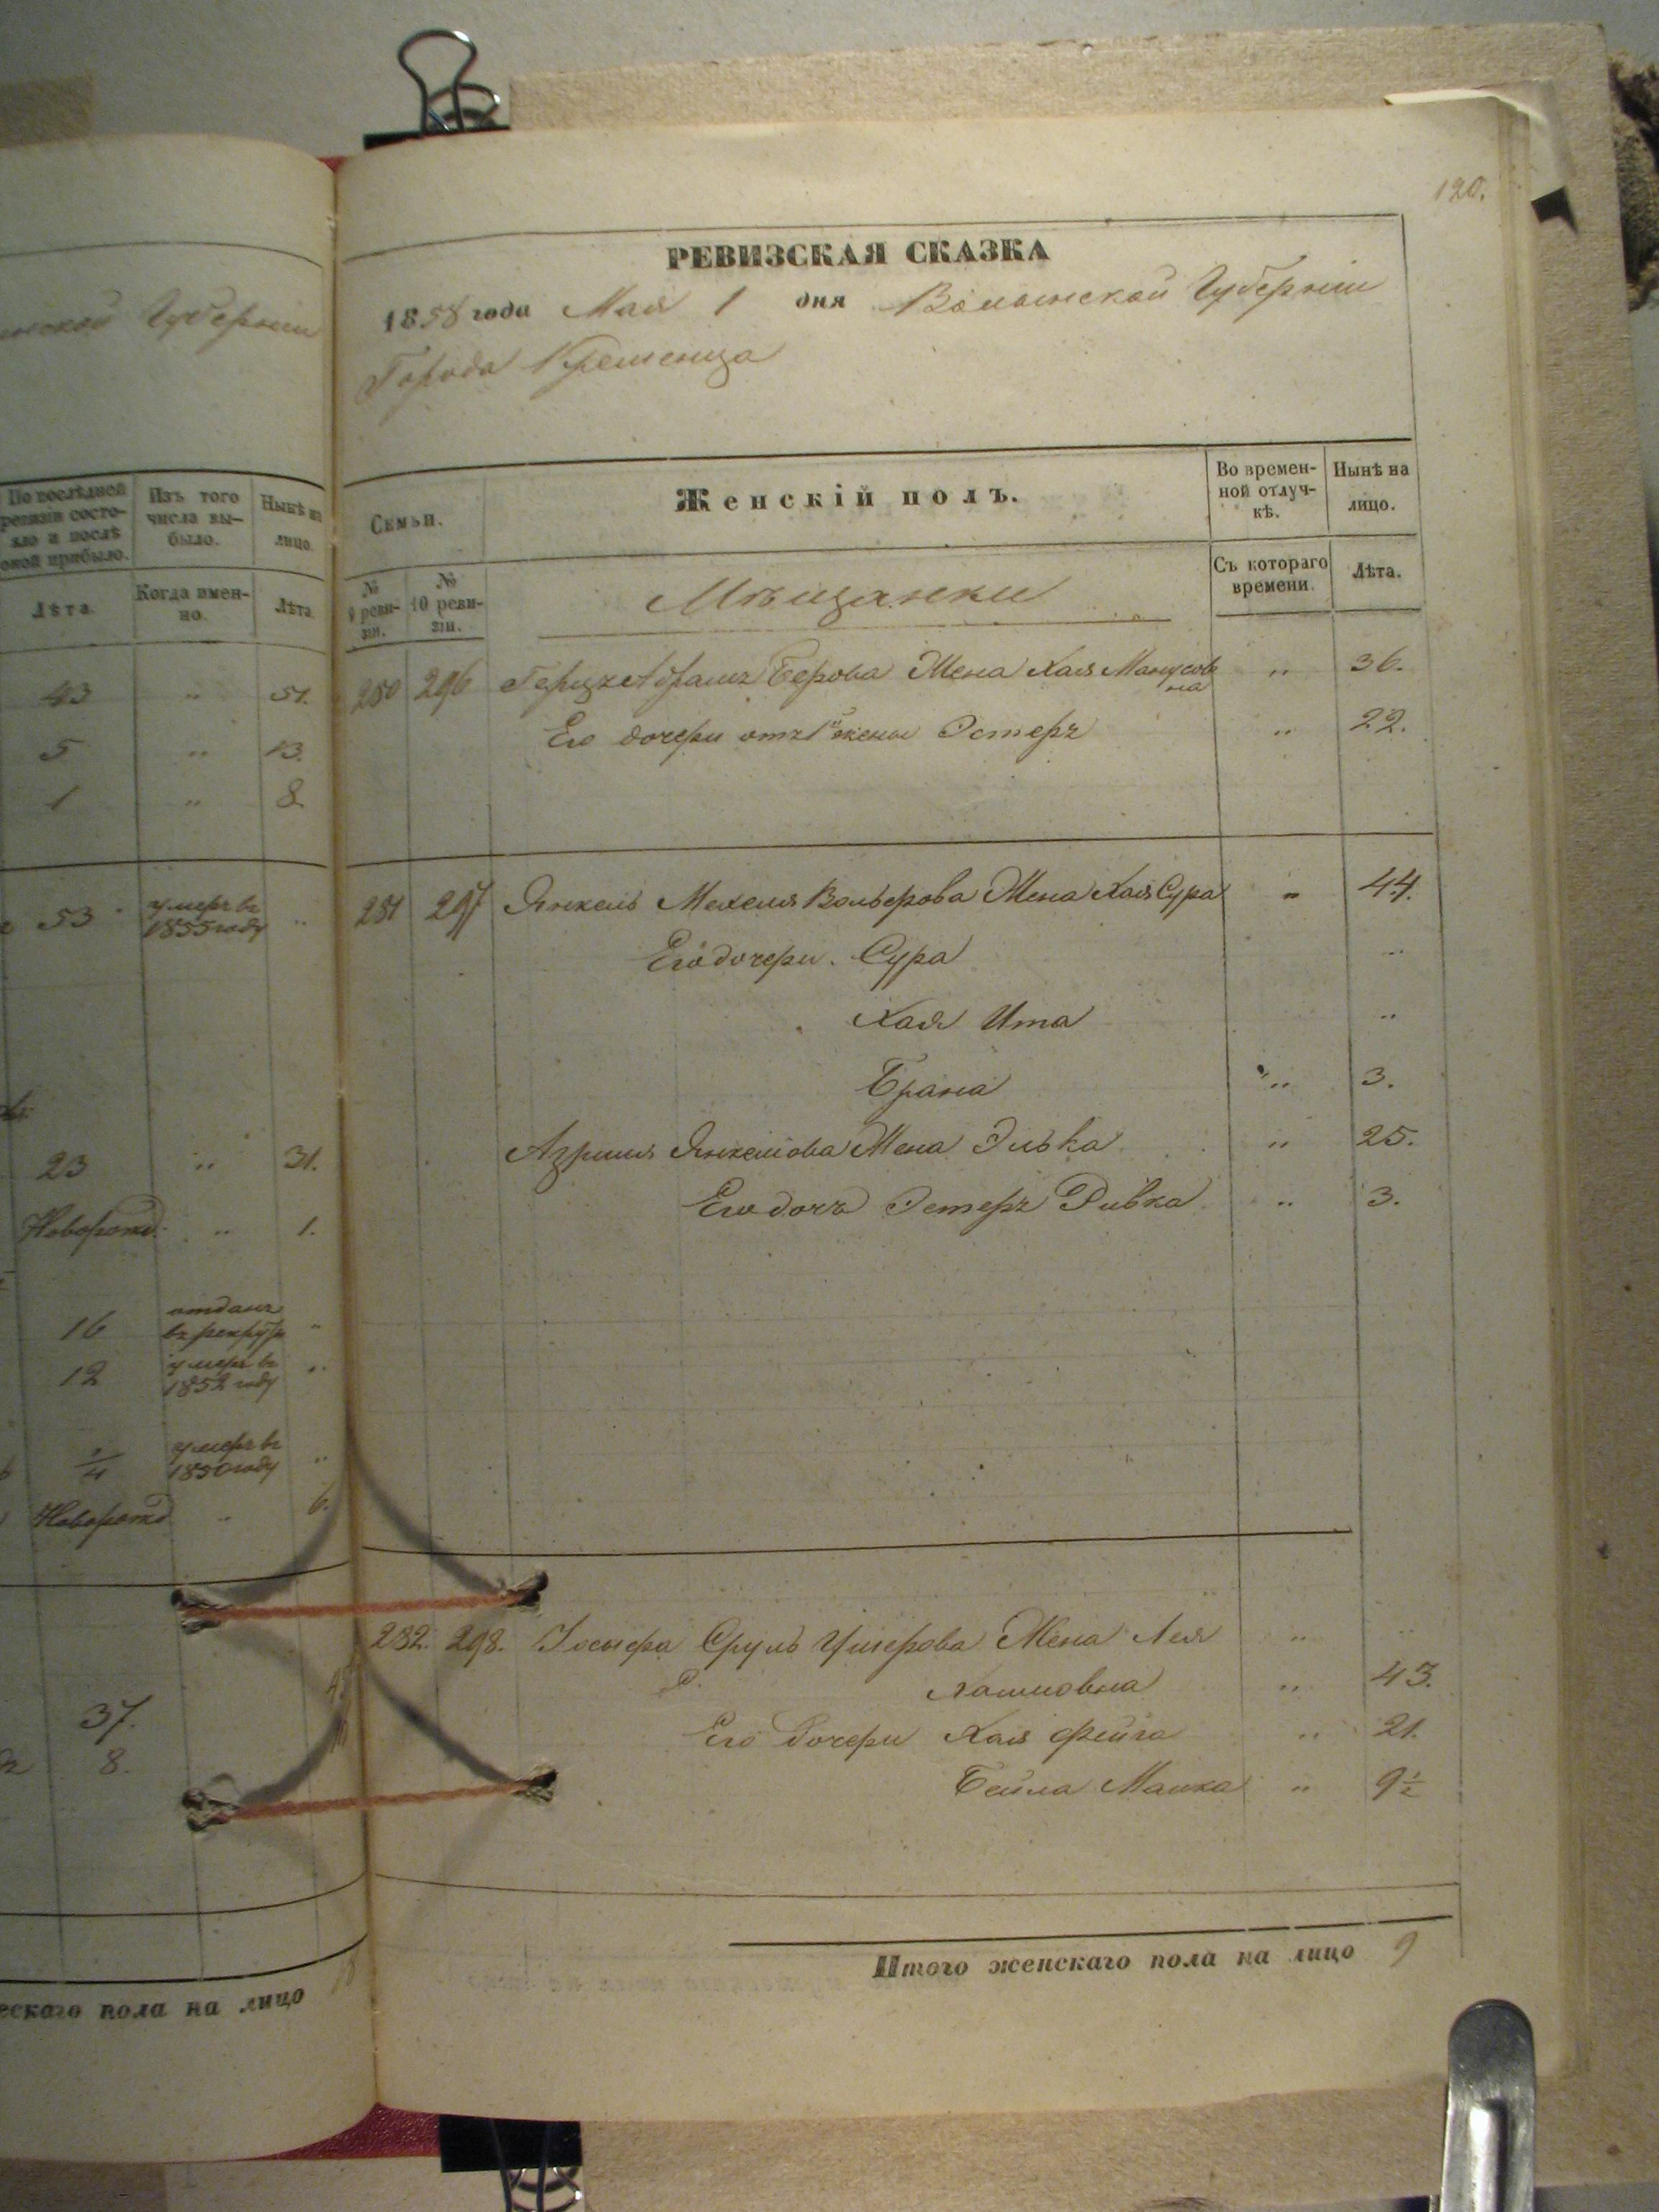 нской Губерніи
По послѣдней ревизіи состо-
яло и послѣ
оной прибыло.
Изъ того
числа вы-
было.
Нынѣ на
лицо.
Лѣта.
Когда имен-
но.
Лѣта
43 " 51.
5 " 13.
1 " 8.
53 умеръ въ
1855 году "
23 " 31.
Новорожд. " 1.
16 отданъ
въ рекруты "
12 умеръ въ
1852 году "
1/4 умеръ въ
1850 году "
Новорожд " 6.
37.
8.
ескаго пола на лицо
120.
РЕВИЗСКАЯ СКАЗКА
1858 года Мая 1 дня Волынской Губерніи
Города Кременца
Семьи.
Женскій полъ.
Во времен-
ной отлуч-
кѣ.
Нынѣ на
лицо.
№
9 реви-
зіи.
№
10 реви-
зіи.
Мѣщанки
Съ котораго
времени.
Лѣта.
280 296 Герцъ Абрамъ Берова Жена Хая Манусов
на " 36.
Его дочери отъ 1й жены Эстеръ " 22.
281 297 Янкель Мехеля Вольфрова Жена Хая Сура " 44.
Его дочери. Сура "
Хая Ита "
Брана " 3.
Азриля Янкелова Жена Элька " 25.
Его дочь Эстеръ Ривка " 3.
282. 298. Сруль Ушерова Жена Лея " "
" 43.
Его дочери Хая Фейга " 21.
Бейла Малка " 9 1/2
Итого женскаго пола на лицо 9